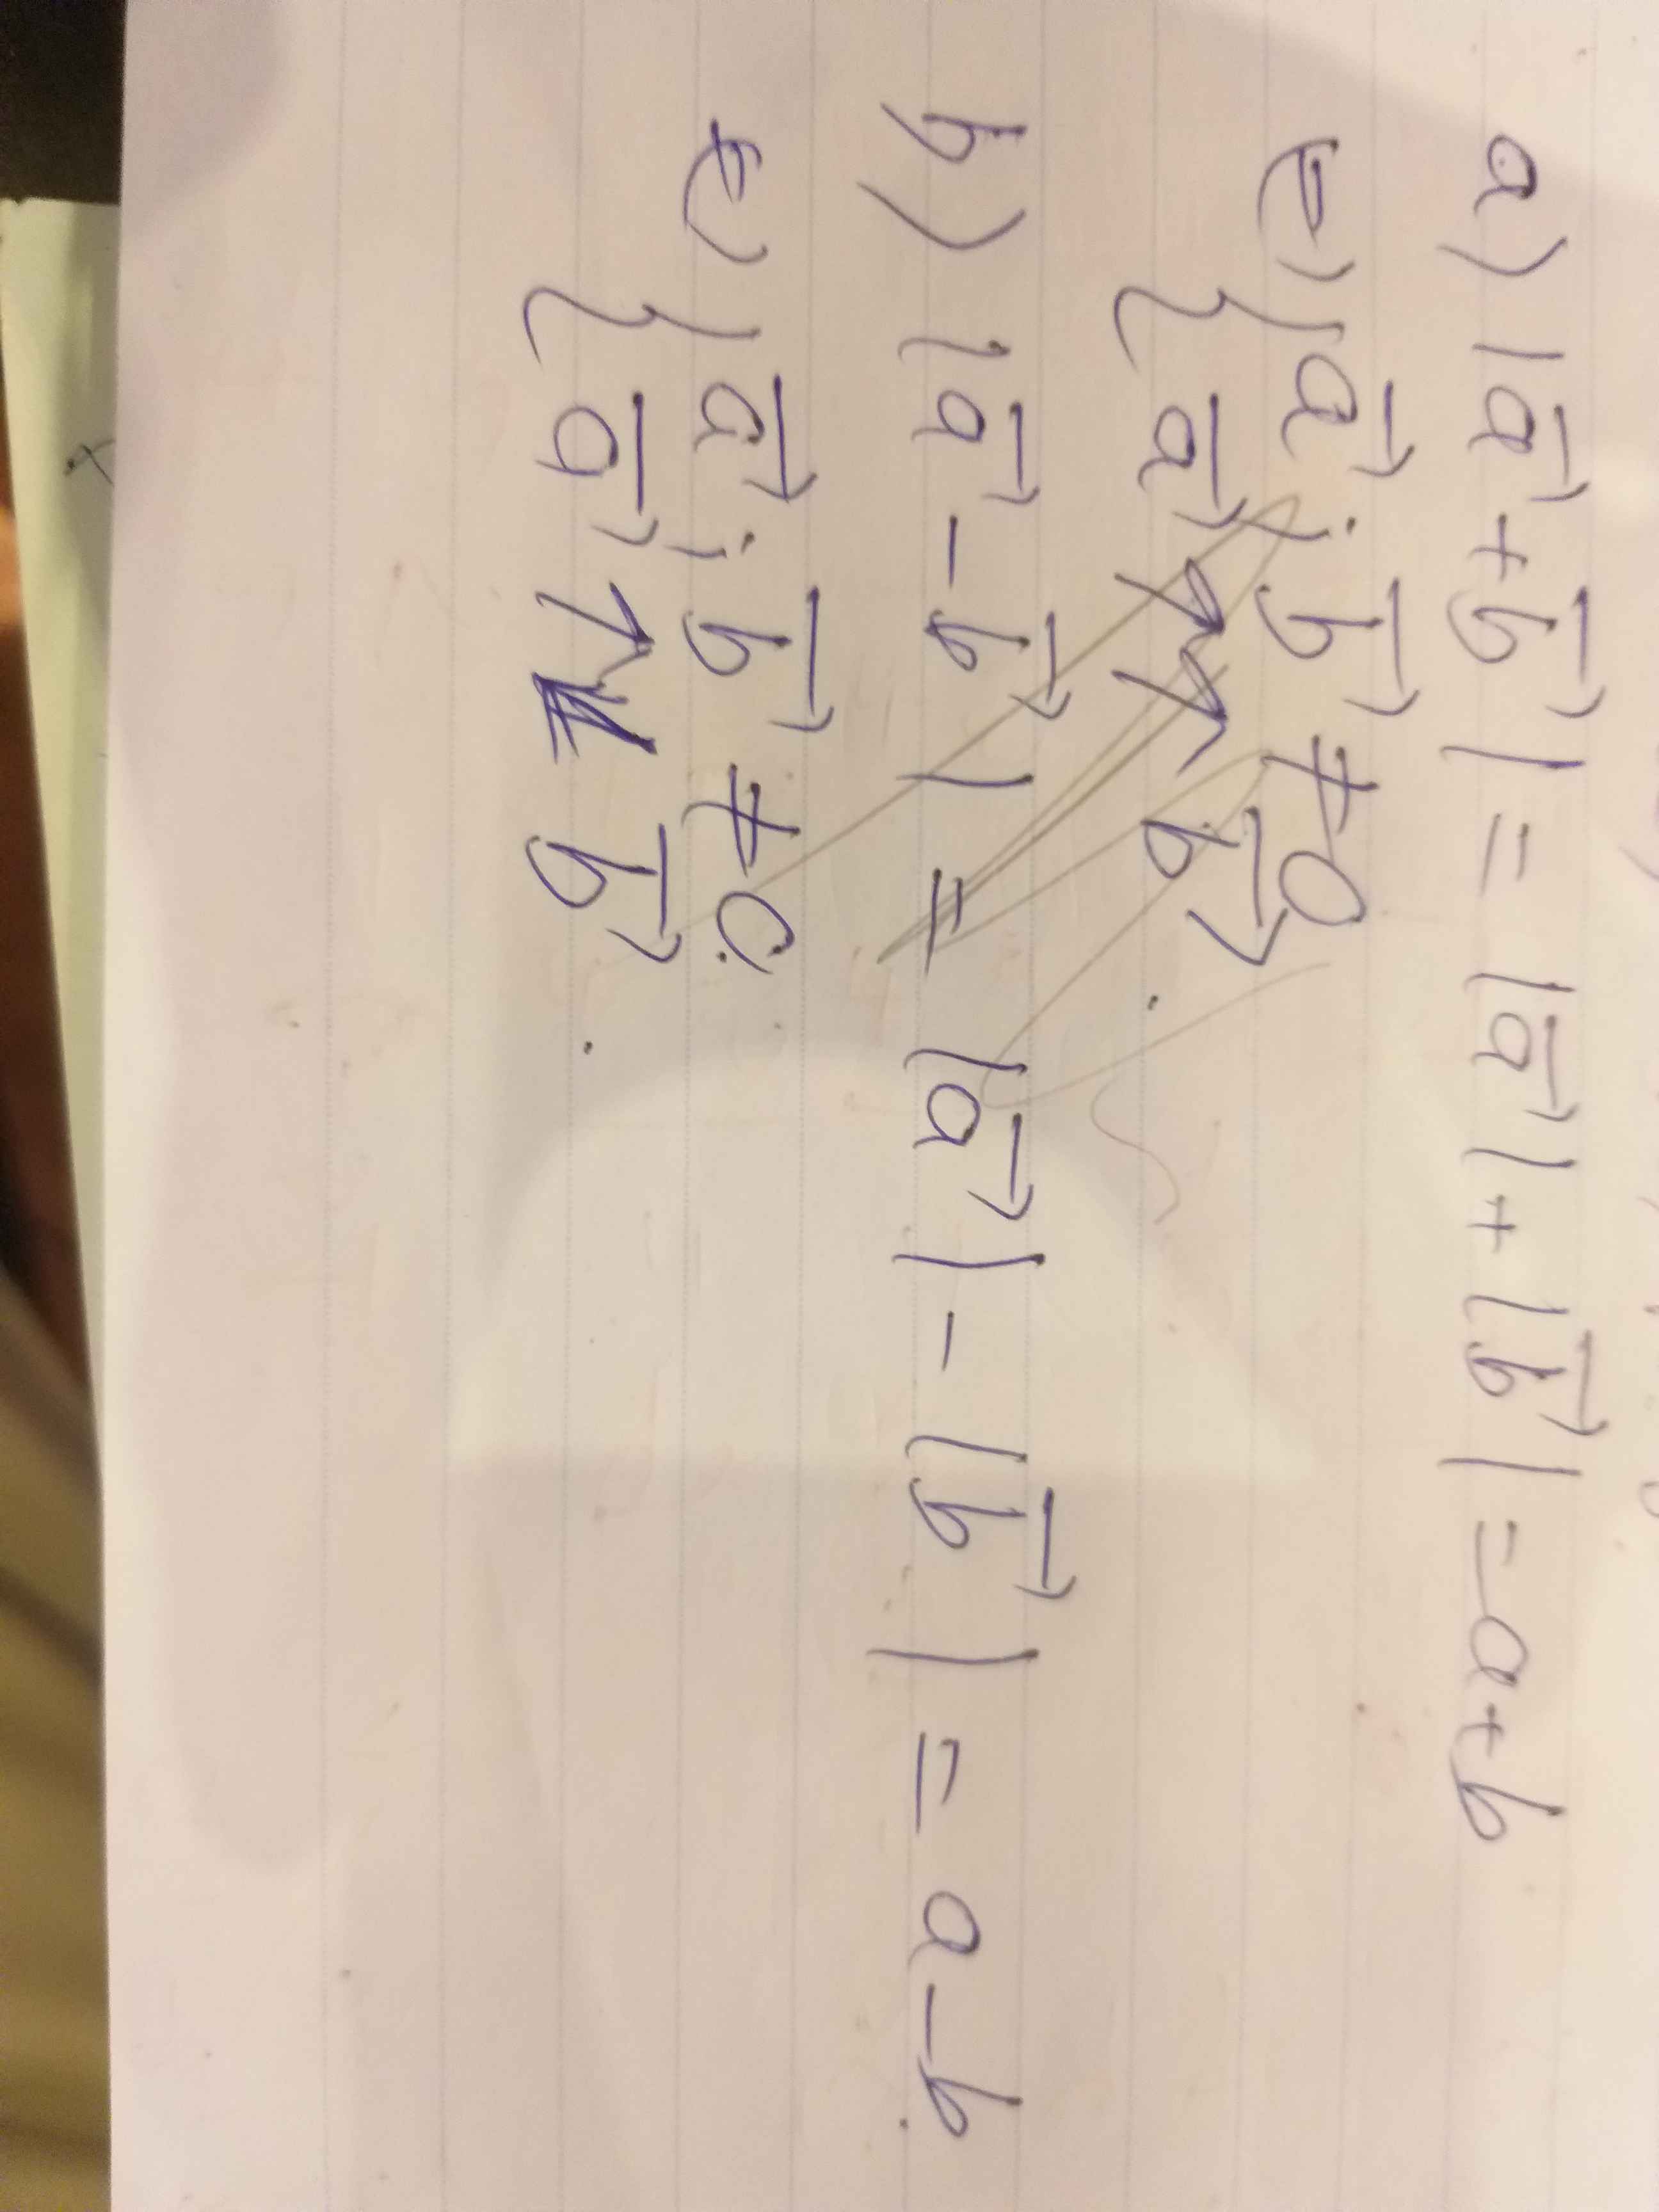 a) |a⃗ + b⃗| = |a⃗| + |b⃗| = a + b
⇔ { a⃗ ; b⃗ ≠ 0
a⃗ ↑↑ b⃗ .
b) |a⃗ - b⃗| = |a⃗| - |b⃗| = a - b
⇔ { a⃗ ; b⃗ ≠ 0
a⃗ b⃗ .